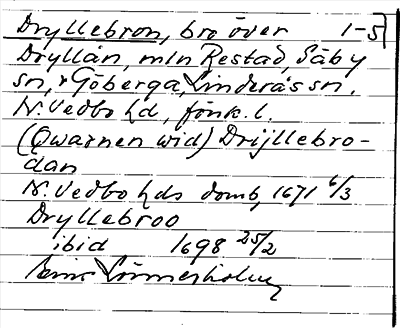 Dryllebron, bro över 1-5
Dryllån, mln Restad, Säby
sn, & Göberga, Linderås sn.
N. Vedbo hd, Jönk. l.
(Qwarnen wid) Drijllebro-
dan
N. Vedbo hds domb, 1671 6/3
Dryllebroo
ibid 1698 25/2